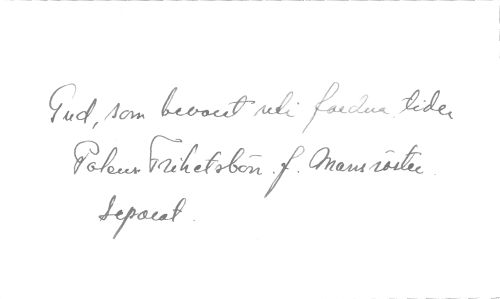 Gud, som bevarat uti fordna tider
Polens Frihetsbön. f. Mansröster.
Separat.